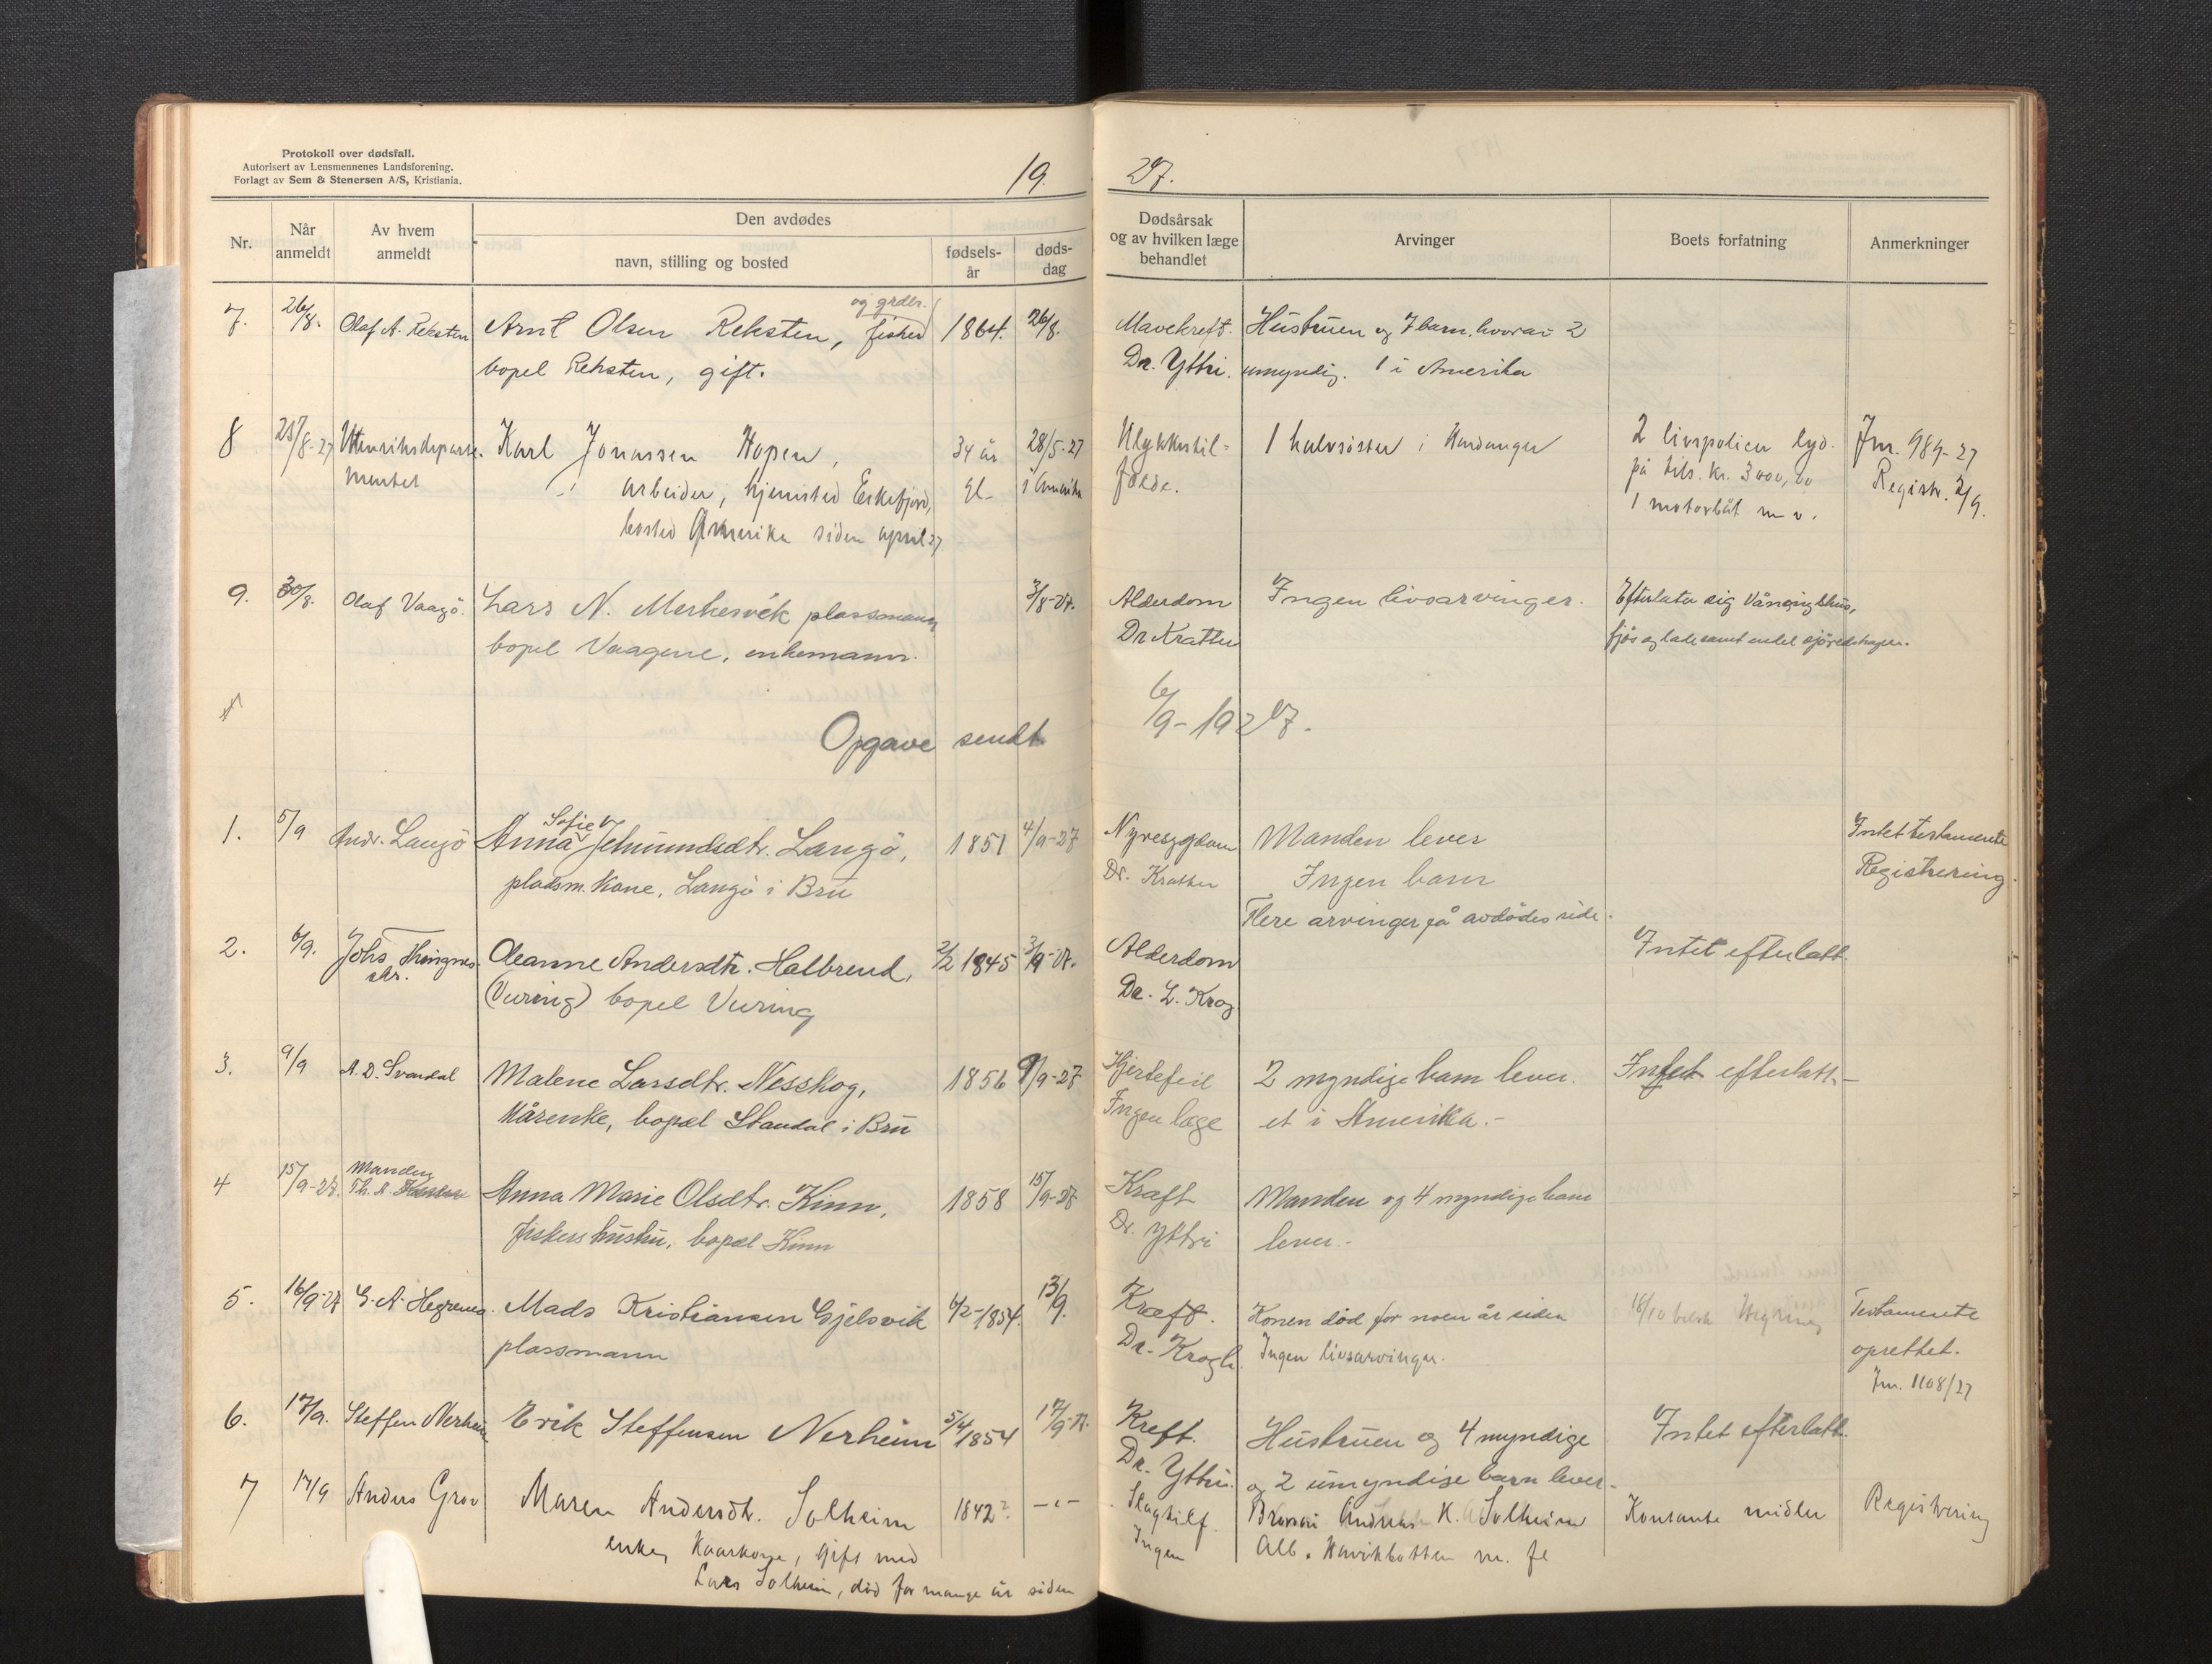 Protokoll over dødsfall.
Autorisert av Lensmennenes Landsforening.
Forlagt av Sem & Stenersen A/S, Kristiania.
19 27.
Nr.
Når anmeldt
Av hvem anmeldt
Den avdødes
navn, stilling og bosted
fødsels-år
døds-dag
Dødsårsak og av hvilken læge behandlet
Arvinger
Boets forfatning
Anmerkninger
7. 26/8. Olaf A. Reksten Arnt Olsen Reksten, og grdbr. fisker 1864. 26/8. Mavekreft. Hustruen og 7 barn, hvorav 2
bopel Reksten, gift. Dr. Yttri. umyndig. 1 i Amerika
8 28/8-27 Utenriksdeparte- Karl Jonassen Hopen, 34 år 28/5-27 Ulykkestil- 1 halvsøster i Hardanger 2 livspolicer lyd. Jnr. 989-27
mentet arbeider, hjemsted Eikefjord, gl- i Amerika fælde. på tils. kr. 3000,00 Registr. 2/9.
bosted Amerika siden april 27 1 motorbåt m v.
9. 30/8. Olaf Vaagö. Lars N. Merkesvik plassmann 3/8-27. Alderdom Ingen livsarvinger. Efterlater sig våningshus,
bopel Vaagene, enkemann. Dr Kratter fjøs og lade samt endel sjøredskaper.
Opgave sendt 6/9-1927.
1. 5/9 Andr. Langö Anna Sofie Jetmundsdtr. Langö, 1851 4/9-27 Nyresygdom Manden lever Intet testamente
pladsm. kone, Langö i Bru Dr. Kratter Ingen barn Registrering.
Flere arvinger på avdødes side.
2. 6/9. Johs Thingnes Oleanne Andersdtr. Halbrend, 2/2 1845 3/9-27. Alderdom Intet efterlatt.
skr. (Vuring) bopel Vuring Dr. L. Krog
3. 9/9 A. D. Svardal Malene Larsdtr. Nesshog, 1856 9/9-27 Hjertefeil 2 myndige barn lever. Intet efterlatt-
Kårenke, bopæl Standal i Bru Ingen læge et i Amerika.-
4 15/9-27. Manden Anna Marie Olsdtr. Kinn, 1858 15/9-27 Kraft Manden og 4 myndige barn
Th. A. fiskers hustru, bopæl Kinn Dr. Yttri lever.-
5. 16/9-27 G. A. Hegrenes. Mads Kristiansen Gjelsvik 4/2-1854. 13/9. Kræft. Konen død for noen år siden 18/10 Testamente
plassmann Dr. Krogh. Ingen livsarvinger. oprettet.
Jnr. 1108/27
6. 17/9. Steffen Nerheim Erik Steffensen Nerheim 5/4 1854 17/9-27. Kreft. Hustruen og 4 myndige Intet efterlatt.
Dr. Yttri. og 2 umyndige barn lever.
7 17/9 Anders Grov Maren Andersdtr. Solheim 1842? -"- Slagtilf. Andreas K. Solheim Kontante midler Registrering
enke, Kaarkone, gift med Ingen Alb. Havikbotten m. fl
Lars Solheim, död for mange år siden